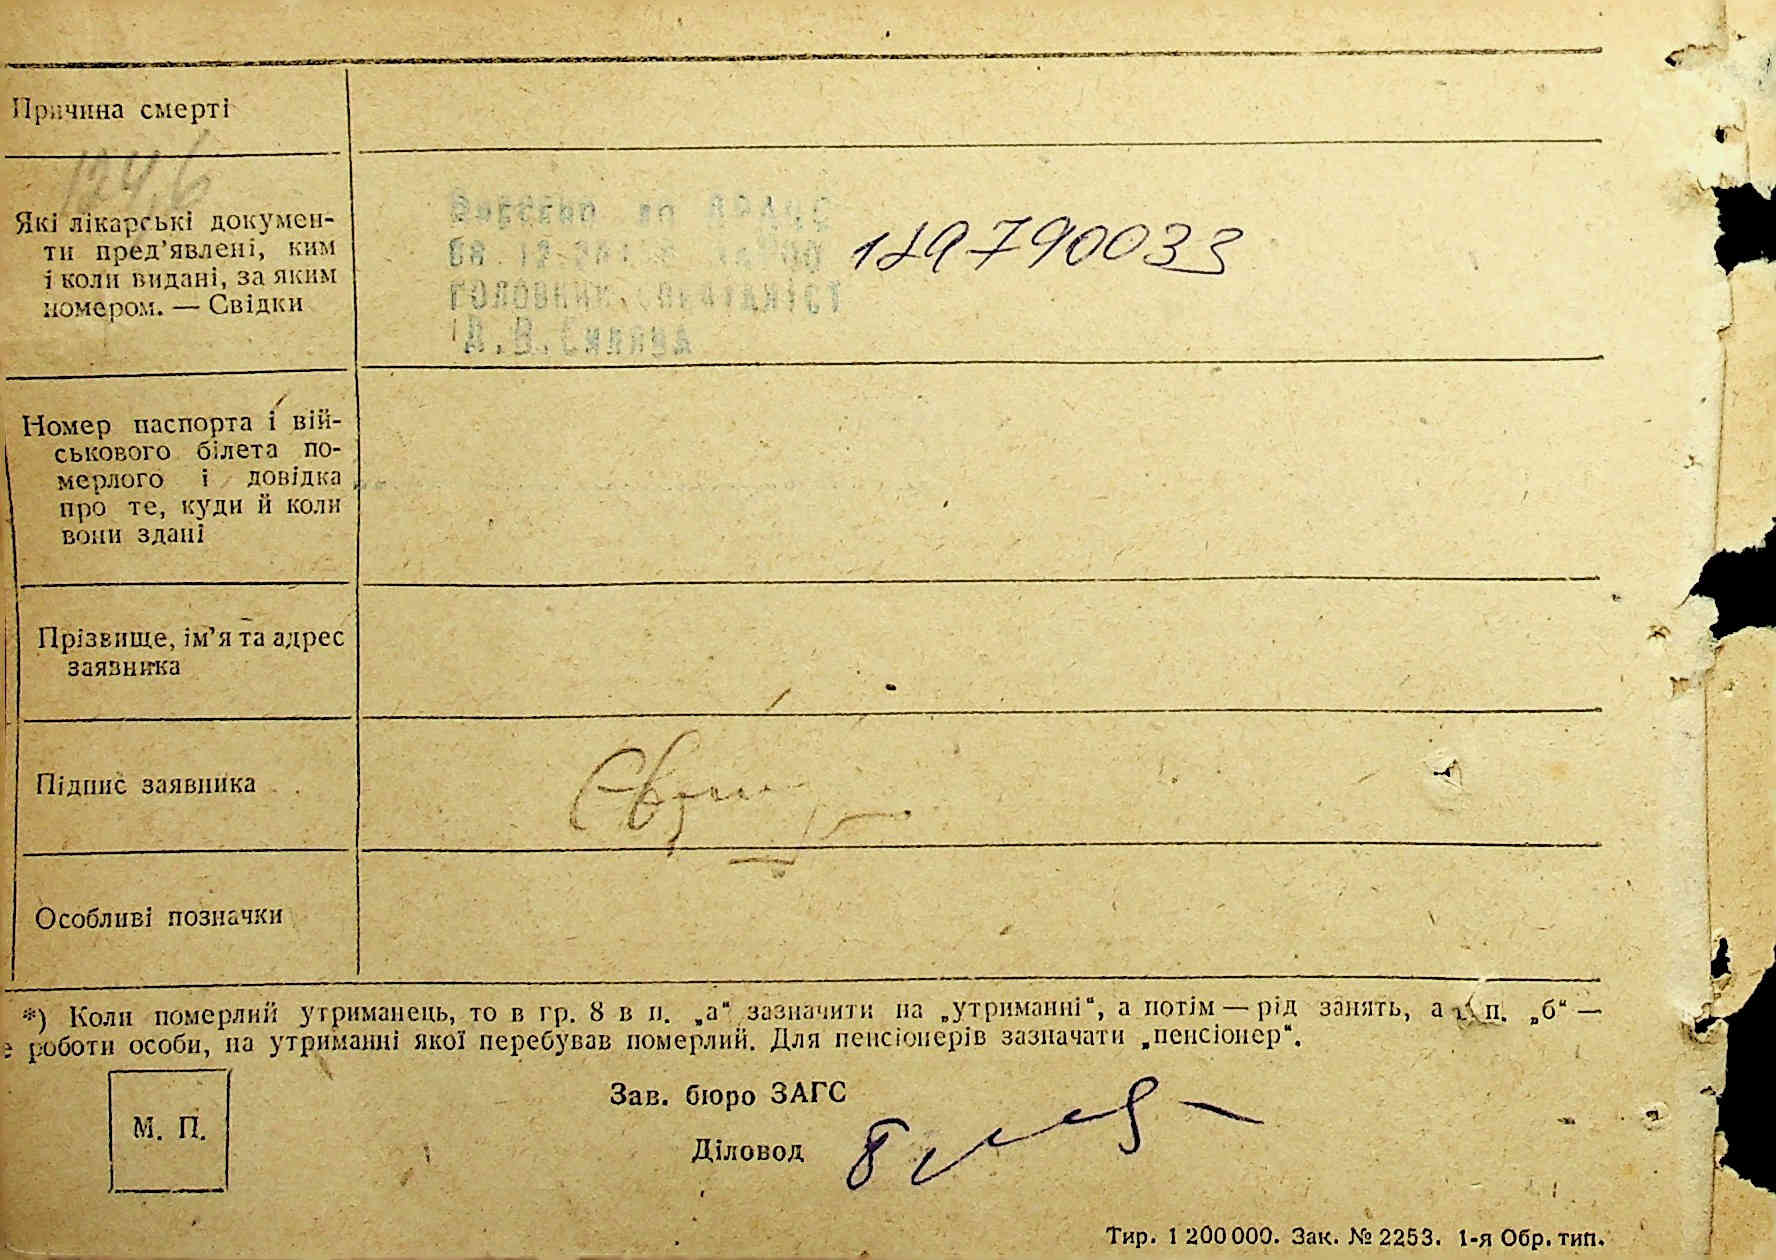 Причина смерті
124,6
Які лікарські докумен-
ти пред’явлені, ким
і коли видані, за яким
номером. — Свідки
Внесено до
головний спеціаліст
129790033
Номер паспорта і вій-
ськового білета по-
мерлого і довідка
про те, куди й коли
вони здані
Прізвище, ім’я та адрес
заявника
Підпис заявника
Особливі позначки
*) Коли померлий утриманець, то в гр. 8 в п. „а“ зазначити на „утриманні“, а потім — рід занять, а п. „б“ —
роботи особи, на утриманні якої перебував померлий. Для пенсіонерів зазначати „пенсіонер“.
М. П.
Зав. бюро ЗАГС
Діловод
Тир. 1 200 000. Зак. № 2253. 1-я Обр. тип.